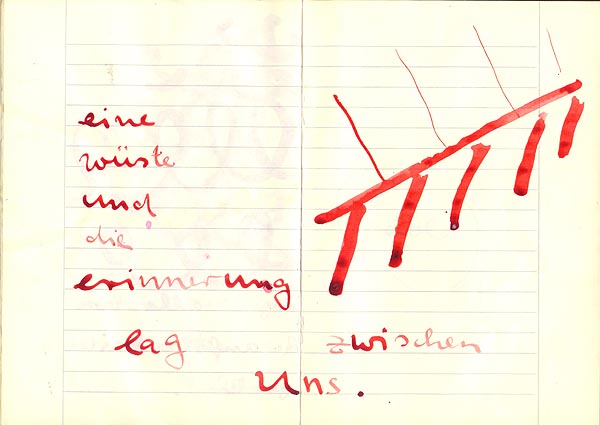 eine
wüste
und
die
erinnerung
lag zwischen
Uns.